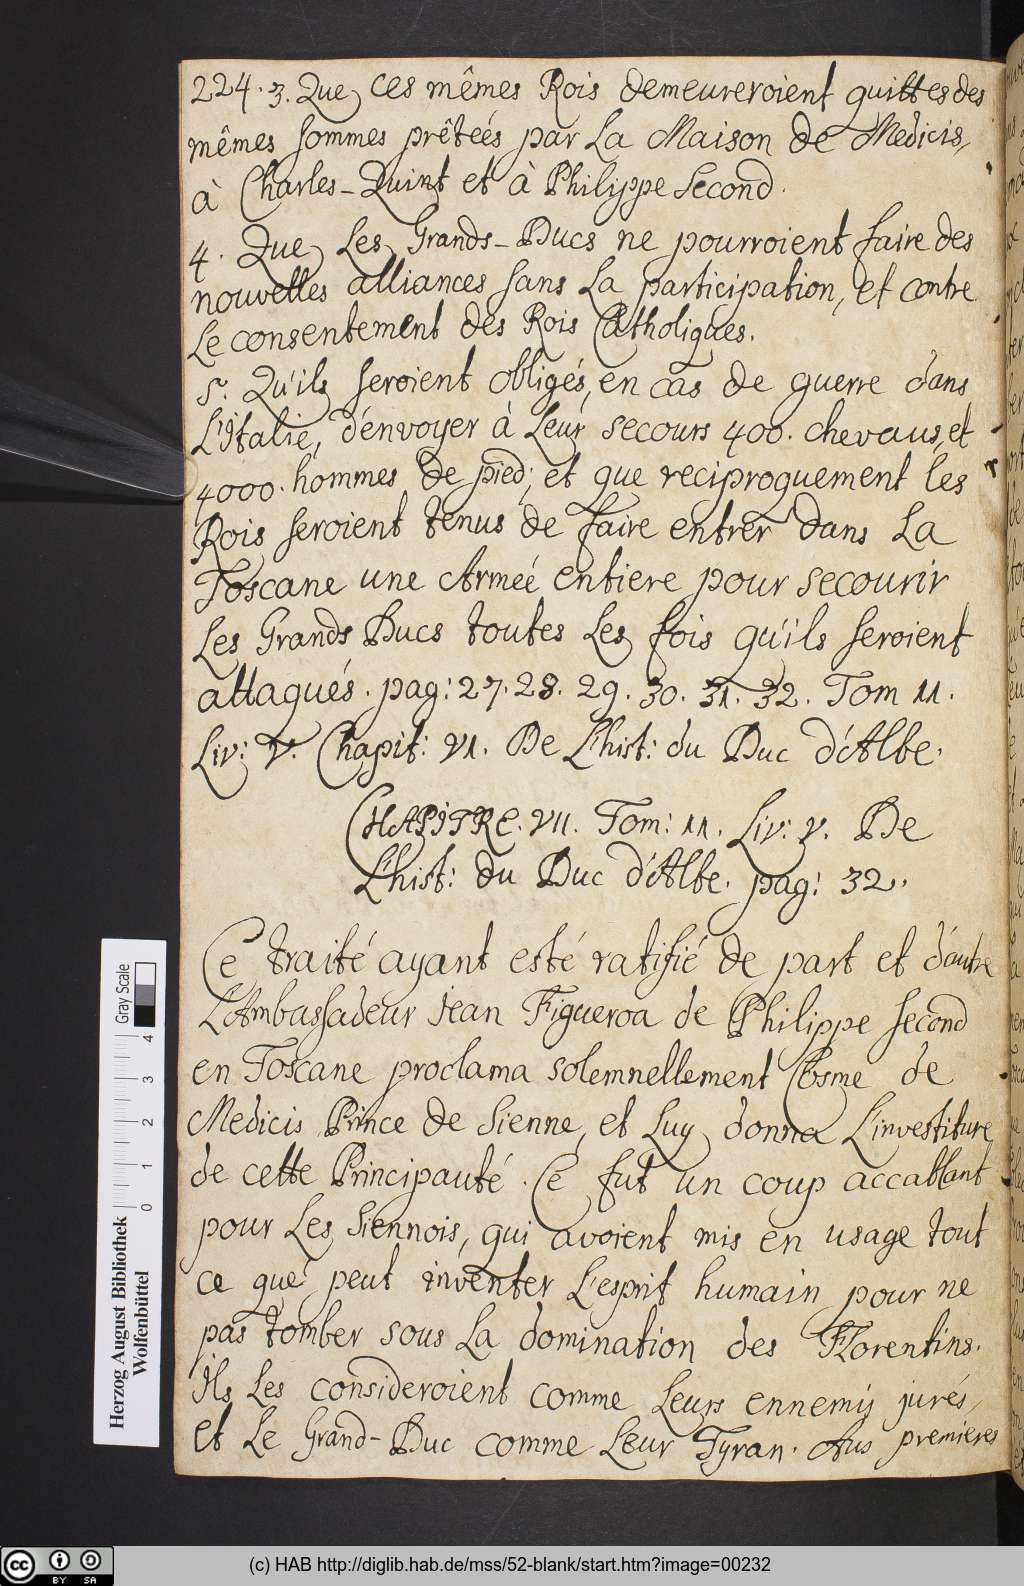 224. 3. Que ces mêmes Rois demeureroient quittes des
mêmes sommes prêteés par La Maison de Medicis,
à Charles-Quint et à Philippe Second.
4. Que Les Grands-Ducs ne pourroient faire des
nouvelles alliances sans La participation, et contre
Le consentement des Rois Catholiques.
5. Qu'ils seroient obligés, en cas de guerre dans
L'Italie, d'envoyer à Leur secours 400. chevaus, et
4000. hommes de pied; et que reciproquement les
Rois seroient tenus de faire entrer dans La
Toscane une Armeé entiere pour secourir
Les Grands Ducs toutes Les fois qu'ils seroient
attaqués. pag: 27. 28. 29. 30. 31. 32. Tom 11.
Liv: V. Chapit: VI. De L'hist: du Duc d'Albe.
CHAPITRE. VII. Tom: 11. Liv: V. De
L'hist: du Duc d'Albe. pag: 32.
Ce traité ayant esté ratifié de part et d'autre
L'Ambassadeur Jean Figueroa de Philippe Second
en Toscane proclama solemnellement Cosme de
Medicis Prince de Sienne, et Luy donna L'investiture
de cette Principauté. Ce fut un coup accablant
pour Les Siennois, qui avoient mis en usage tout
ce que peut inventer L'esprit humain pour ne
pas tomber sous La domination des Florentins.
Ils Les consideroient comme Leurs ennemis jurés,
et Le Grand-Duc comme Leur Tyran. Aus premieres
Herzog August Bibliothek
Wolfenbüttel
Gray Scale
0 1 2 3 4
cc BY SA
(c) HAB http://diglib.hab.de/mss/52-blank/start.htm?image=00232